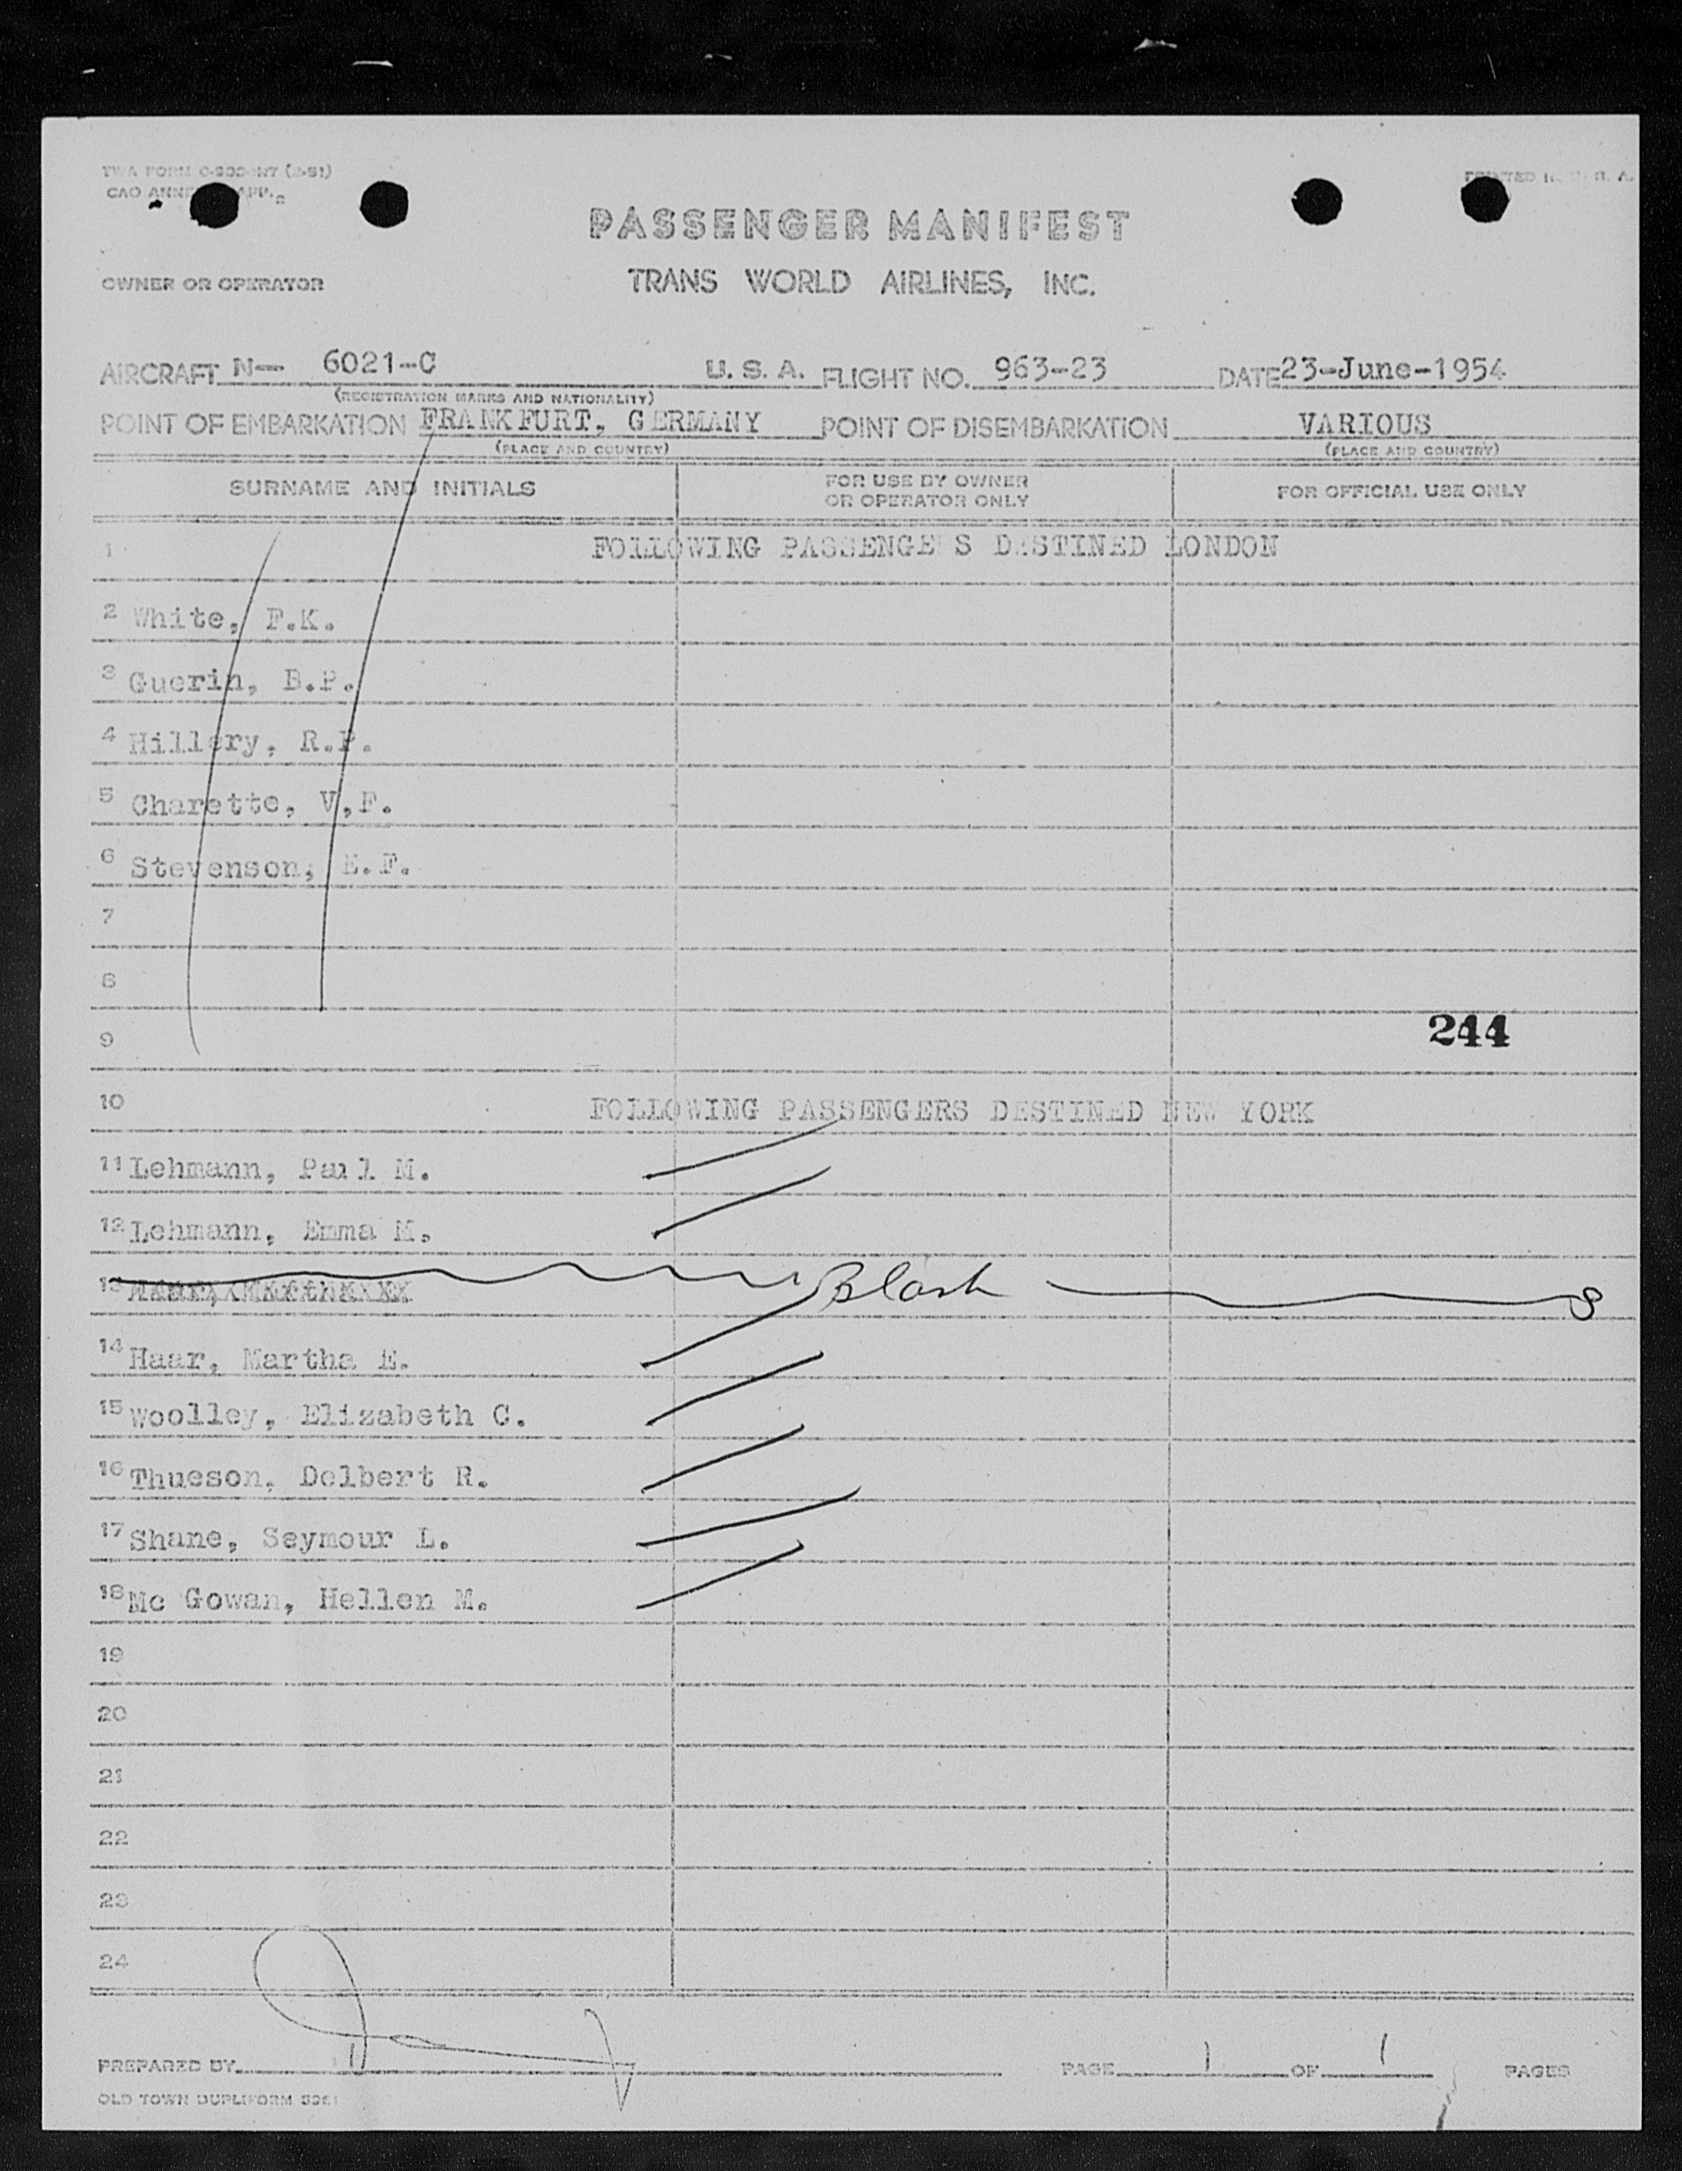 TWA FORM
CAO ANNE APP.
PRINTED IN U. S. A.
PASSENGER MANIFEST
OWNER OR OPERATOR TRANS WORLD AIRLINES, INC.
AIRCRAFT N— 6021-C U. S. A. FLIGHT NO. 963-23 DATE 23-June-1954
(REGISTRATION MARKS AND NATIONALITY)
POINT OF EMBARKATION FRANKFURT, GERMANY POINT OF DISEMBARKATION VARIOUS
(PLACE AND COUNTRY) (PLACE AND COUNTRY)
SURNAME AND INITIALS FOR USE BY OWNER OR OPERATOR ONLY FOR OFFICIAL USE ONLY
1 FOLLOWING PASSENGE S DESTINED LONDON
2 White, F.K.
3 Guerin, B.P.
4 Hillary, R.P.
5 Charette, V,F.
6 Stevenson, E.F.
7
8
9 244
10 FOLLOWING PASSENGERS DESTINED NEW YORK
11 Lehmann, Paul M.
12 Lehmann, Emma M.
13 Blank
14 Haar, Martha E.
15 Woolley, Elizabeth C.
16 Thueson, Delbert R.
17 Shane, Seymour L.
18 Mc Gowan, Hellen M.
19
20
21
22
23
24
PREPARED BY PAGE 1 OF 1 PAGES
OLD TOWN DUPLIFORM